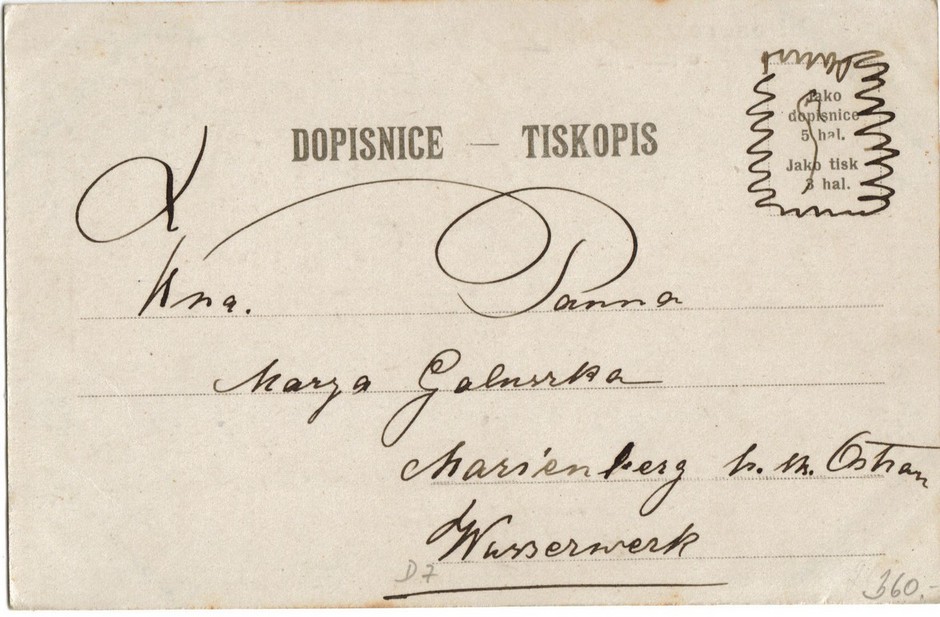 Jako
dopisnice
5 hal.
Jako tisk
3 hal.
DOPISNICE — TISKOPIS
Wna. Panna
Marya Galuszka
Marienberg b. M. Ostrau
Wasserwerk
D7
360.-